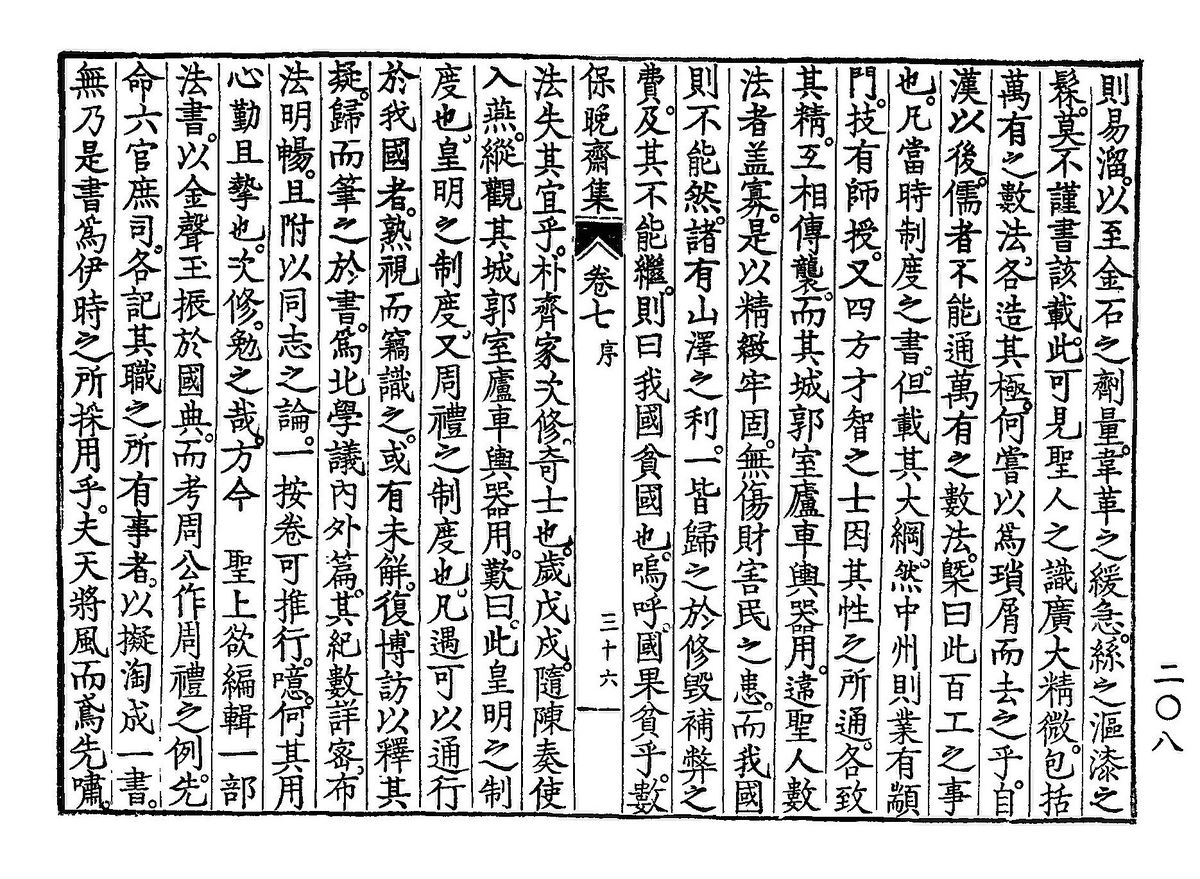 則易溜。以至金石之劑量。韋革之緩急。絲之漚漆之
髹。莫不謹書該載。此可見聖人之識廣大精微。包括
萬有之數法。各造其極。何嘗以爲瑣屑而去之乎。自
漢以後。儒者不能通萬有之數法。槩曰此百工之事
也。凡當時制度之書。但載其大綱。然中州則業有顓
門。技有師授。又四方才智之士因其性之所通。各致
其精。互相傳襲。而其城郭室廬車輿器用。違聖人數
法者盖寡。是以精緻牢固。無傷財害民之患。而我國
則不能然。諸有山澤之利。一皆歸之於修毁補弊之
費。及其不能繼。則曰我國貧國也。嗚呼。國果貧乎。數
保晚齋集 卷七 序 三十六
法失其宜乎。朴齊家次修。奇士也。歲戊戌。隨陳奏使
入燕。縱觀其城郭室廬車輿器用。歎曰。此皇明之制
度也。皇明之制度。又周禮之制度也。凡遇可以通行
於我國者。熟視而竊識之。或有未解。復博訪以釋其
疑。歸而筆之於書。爲北學議內外篇。其紀數詳密。布
法明暢。且附以同志之論。一按卷可推行。噫。何其用
心勤且摯也。次修。勉之哉。方今 聖上欲編輯一部
法書。以金聲玉振於國典。而考周公作周禮之例。先
命六官庶司。各記其職之所有事者。以擬淘成一書。
無乃是書爲伊時之所採用乎。夫天將風而鳶先嘯。
二〇八